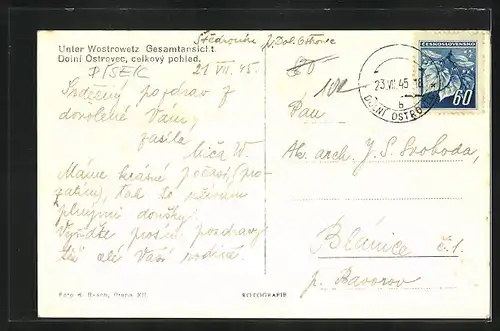 Unter Wostrowetz Gesamtansicht.
Dolní Ostrovec, celkový pohled.
PÍSEK
21 VII. 45.
Srdečný pozdrav z
dovolené Vám
zasílá
Máme krásné počasí
tak že užívám
plnými doušky.
Vyřiďte prosím pozdravy
též celé Vaší rodině.
Foto K. Praha XII.
FOTOGRAFIE
ČESKOSLOVENSKO
60
23.VII.45
b
DOLNÍ OSTROVEC
Pán
Ak. arch. J. S. Svoboda,
Blanice č.1.
p. Bavorov